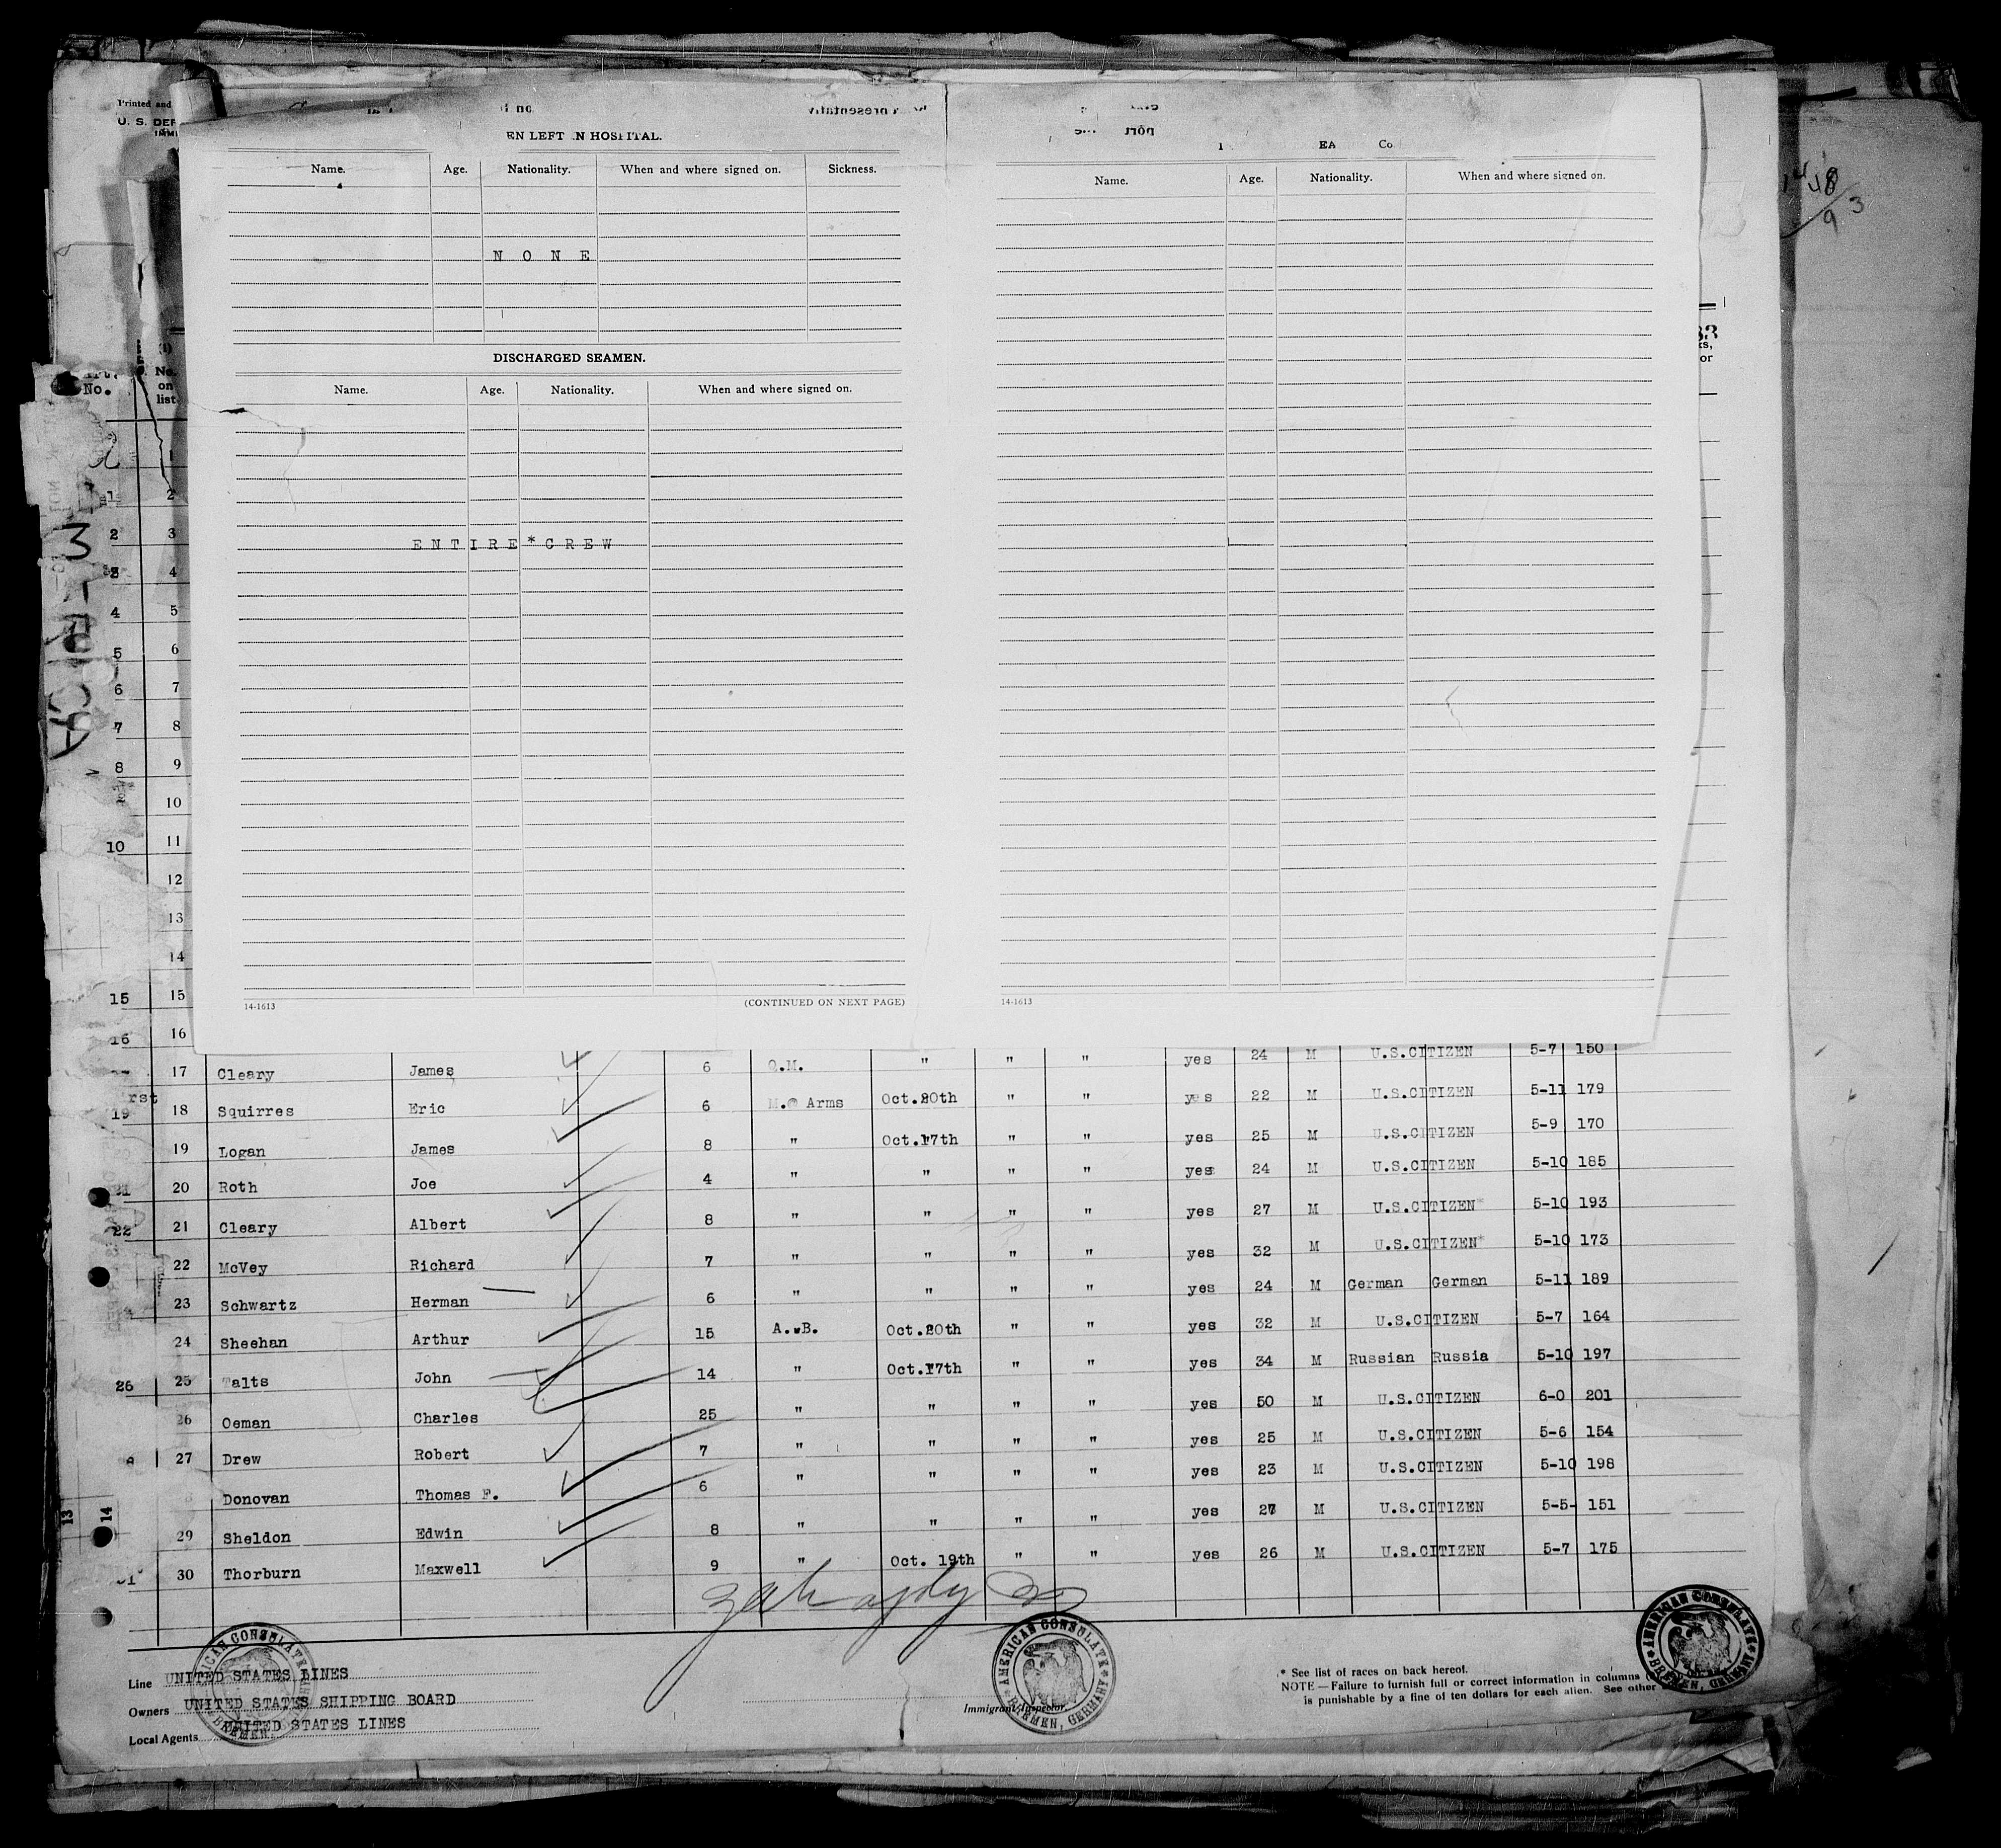 Printed and
U. S. DEP
IMMI
EN LEFT IN HOSPITAL.
Name. Age. Nationality. When and where signed on. Sickness.
N O N E
DISCHARGED SEAMEN.
Name. Age. Nationality. When and where signed on.
E N T I R E * C R E W
14-1613 (CONTINUED ON NEXT PAGE)
EA Co
Name. Age. Nationality. When and where signed on.
14-1613
No.
No. on list.
1
2
3
4
5
6
7
8
9
10
11
12
13
14
15 15
16 16
17 Cleary James 6 Q.M. " " " yes 24 M U.S.CITIZEN 5-7 150
18 Squirres Eric 6 M.@ Arms Oct.20th " " yes 22 M U.S.CITIZEN 5-11 179
19 Logan James 8 " Oct.17th " " yes 25 M U.S.CITIZEN 5-9 170
20 Roth Joe 4 " " " " yes 24 M U.S.CITIZEN 5-10 185
21 Cleary Albert 8 " " " " yes 27 M U.S.CITIZEN 5-10 193
22 McVey Richard 7 " " " " yes 32 M U.S.CITIZEN 5-10 173
23 Schwartz Herman 6 " " " " yes 24 M German German 5-11 189
24 Sheehan Arthur 15 A.B. Oct.20th " " yes 32 M U.S.CITIZEN 5-7 164
25 Talts John 14 " Oct.17th " " yes 34 M Russian Russia 5-10 197
26 Oeman Charles 25 " " " " yes 50 M U.S.CITIZEN 6-0 201
27 Drew Robert 7 " " " " yes 25 M U.S.CITIZEN 5-6 154
Donovan Thomas F. 6 " " " " yes 23 M U.S.CITIZEN 5-10 198
29 Sheldon Edwin 8 " " " " yes 27 M U.S.CITIZEN 5-5- 151
30 Thorburn Maxwell 9 " Oct. 19th " " yes 26 M U.S.CITIZEN 5-7 175
Line UNITED STATES LINES
Owners UNITED STATES SHIPPING BOARD
Local Agents UNITED STATES LINES
AMERICAN CONSULATE BREMEN, GERMANY
Immigrant Inspector.
AMERICAN CONSULATE BREMEN, GERMANY
* See list of races on back hereof.
NOTE—Failure to furnish full or correct information in columns
is punishable by a fine of ten dollars for each alien. See other
AMERICAN CONSULATE BREMEN, GERMANY